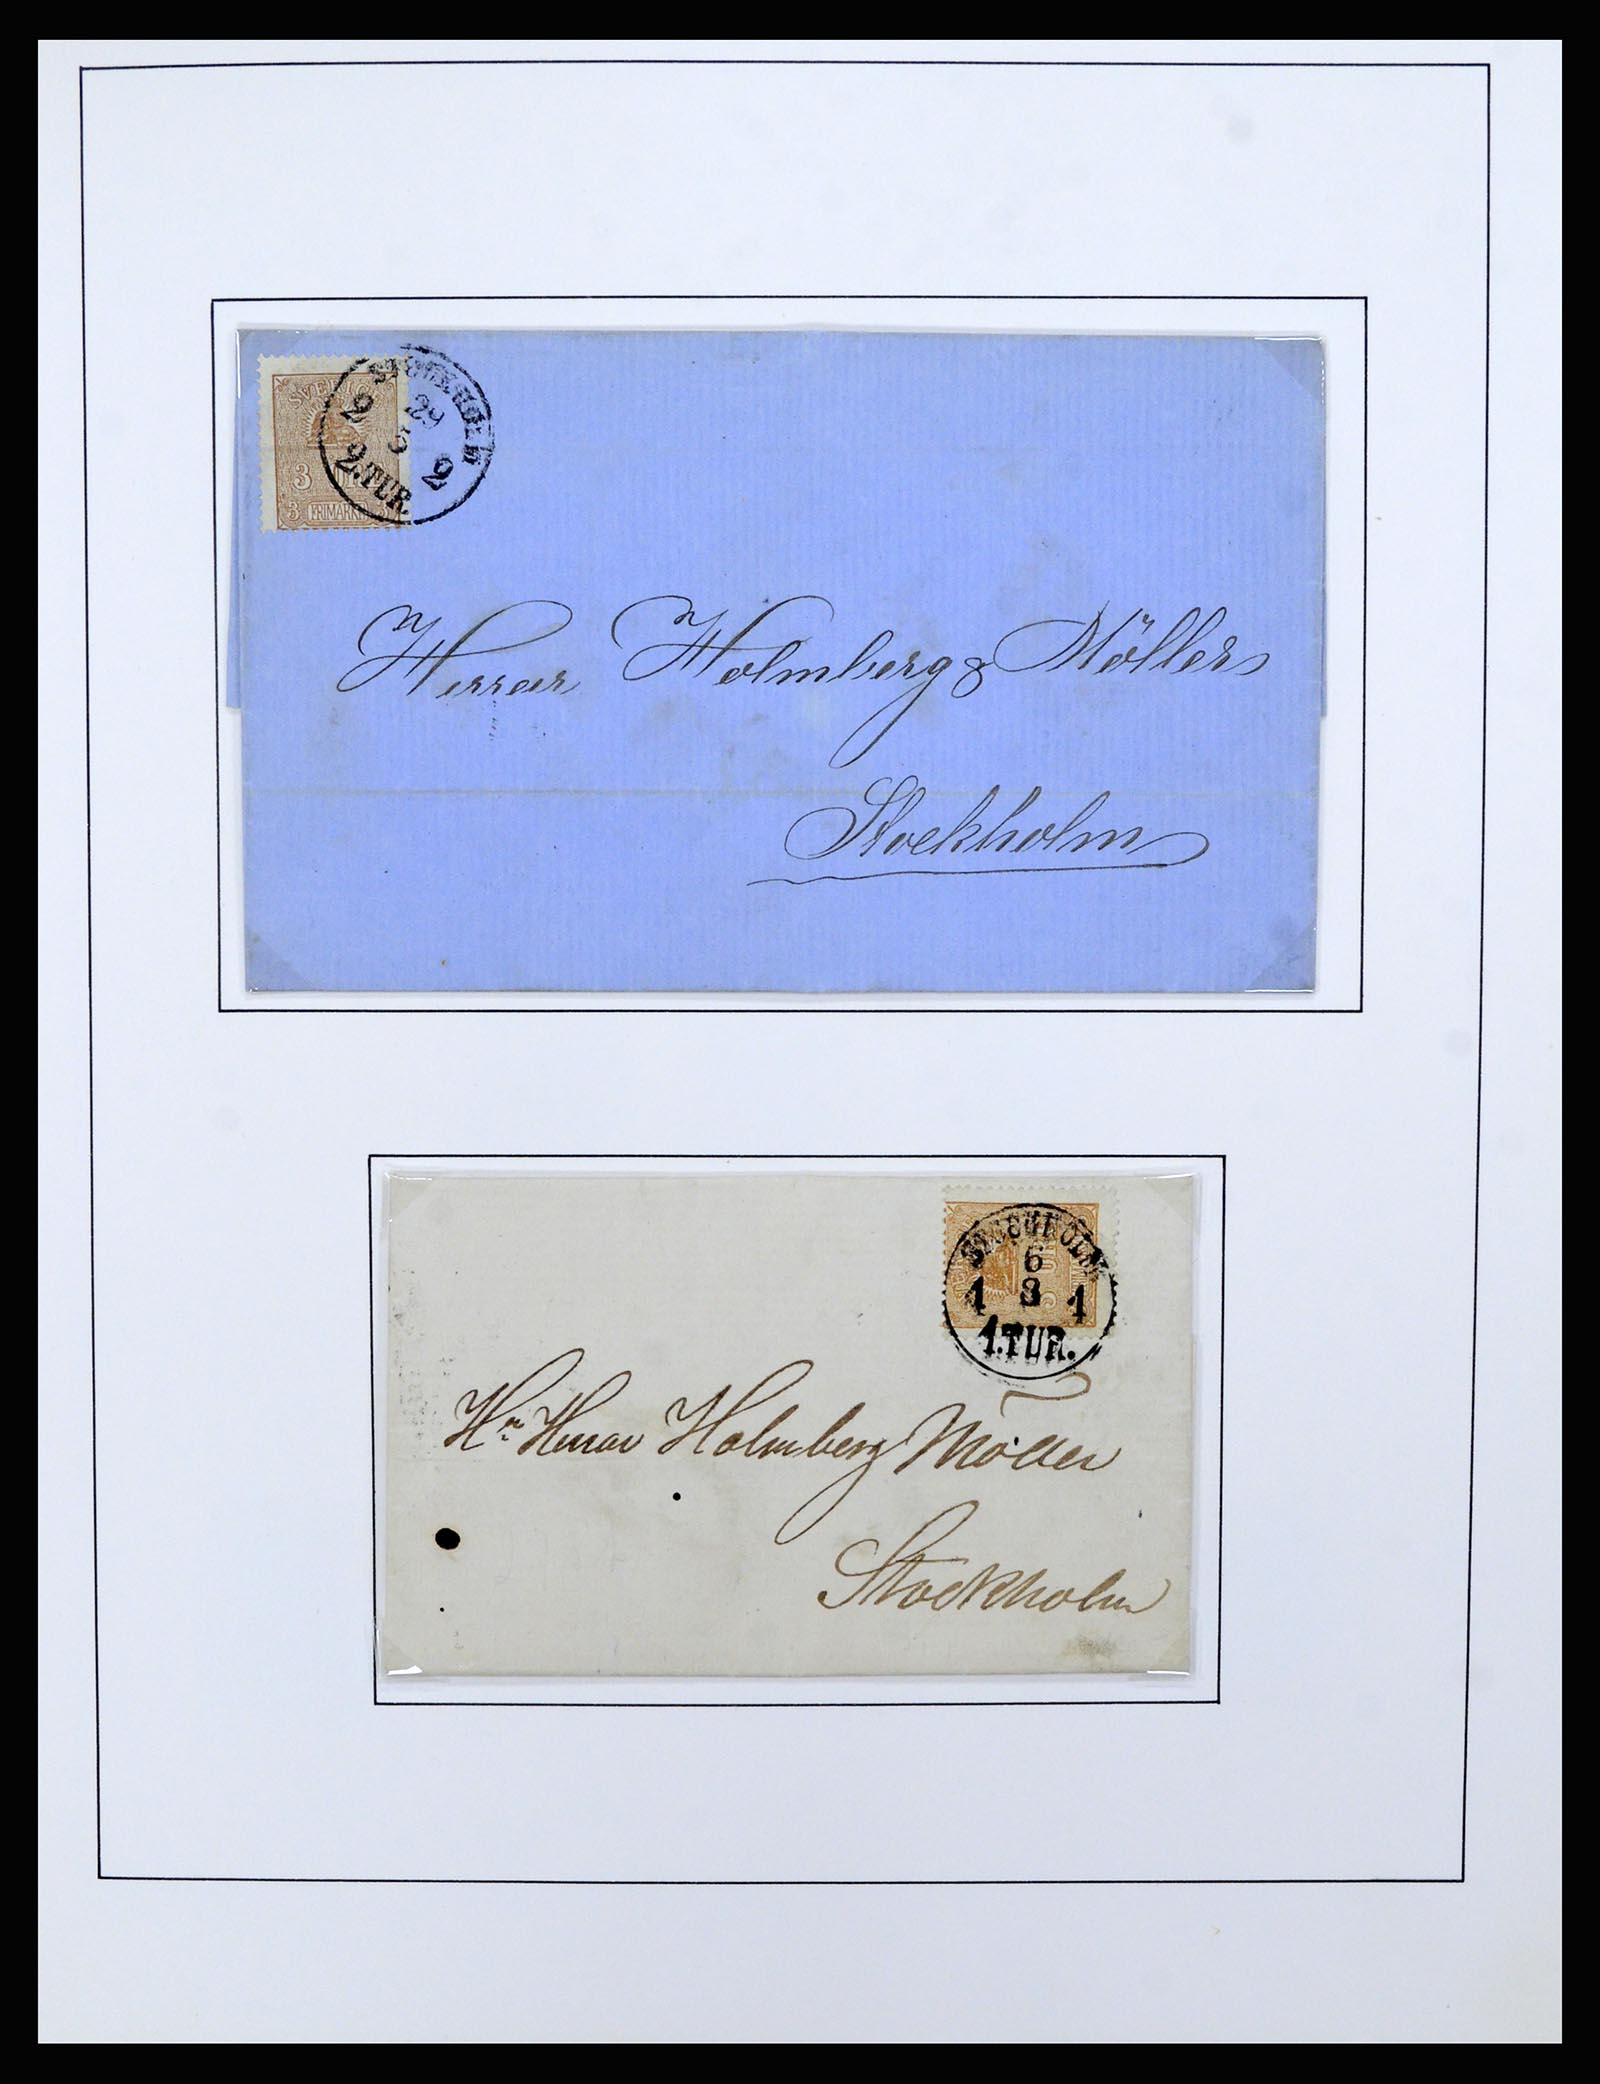 SVERIGE
3
3 FRIMÄRKE 3
STOCKHOLM
2 29 2
5
2.TUR.
Herrar Holmberg & Möllers
Stockholm
STOCKHOLM
6
1 8 1
1.TUR.
Hrr Herrar Holmberg Möller
Stockholm